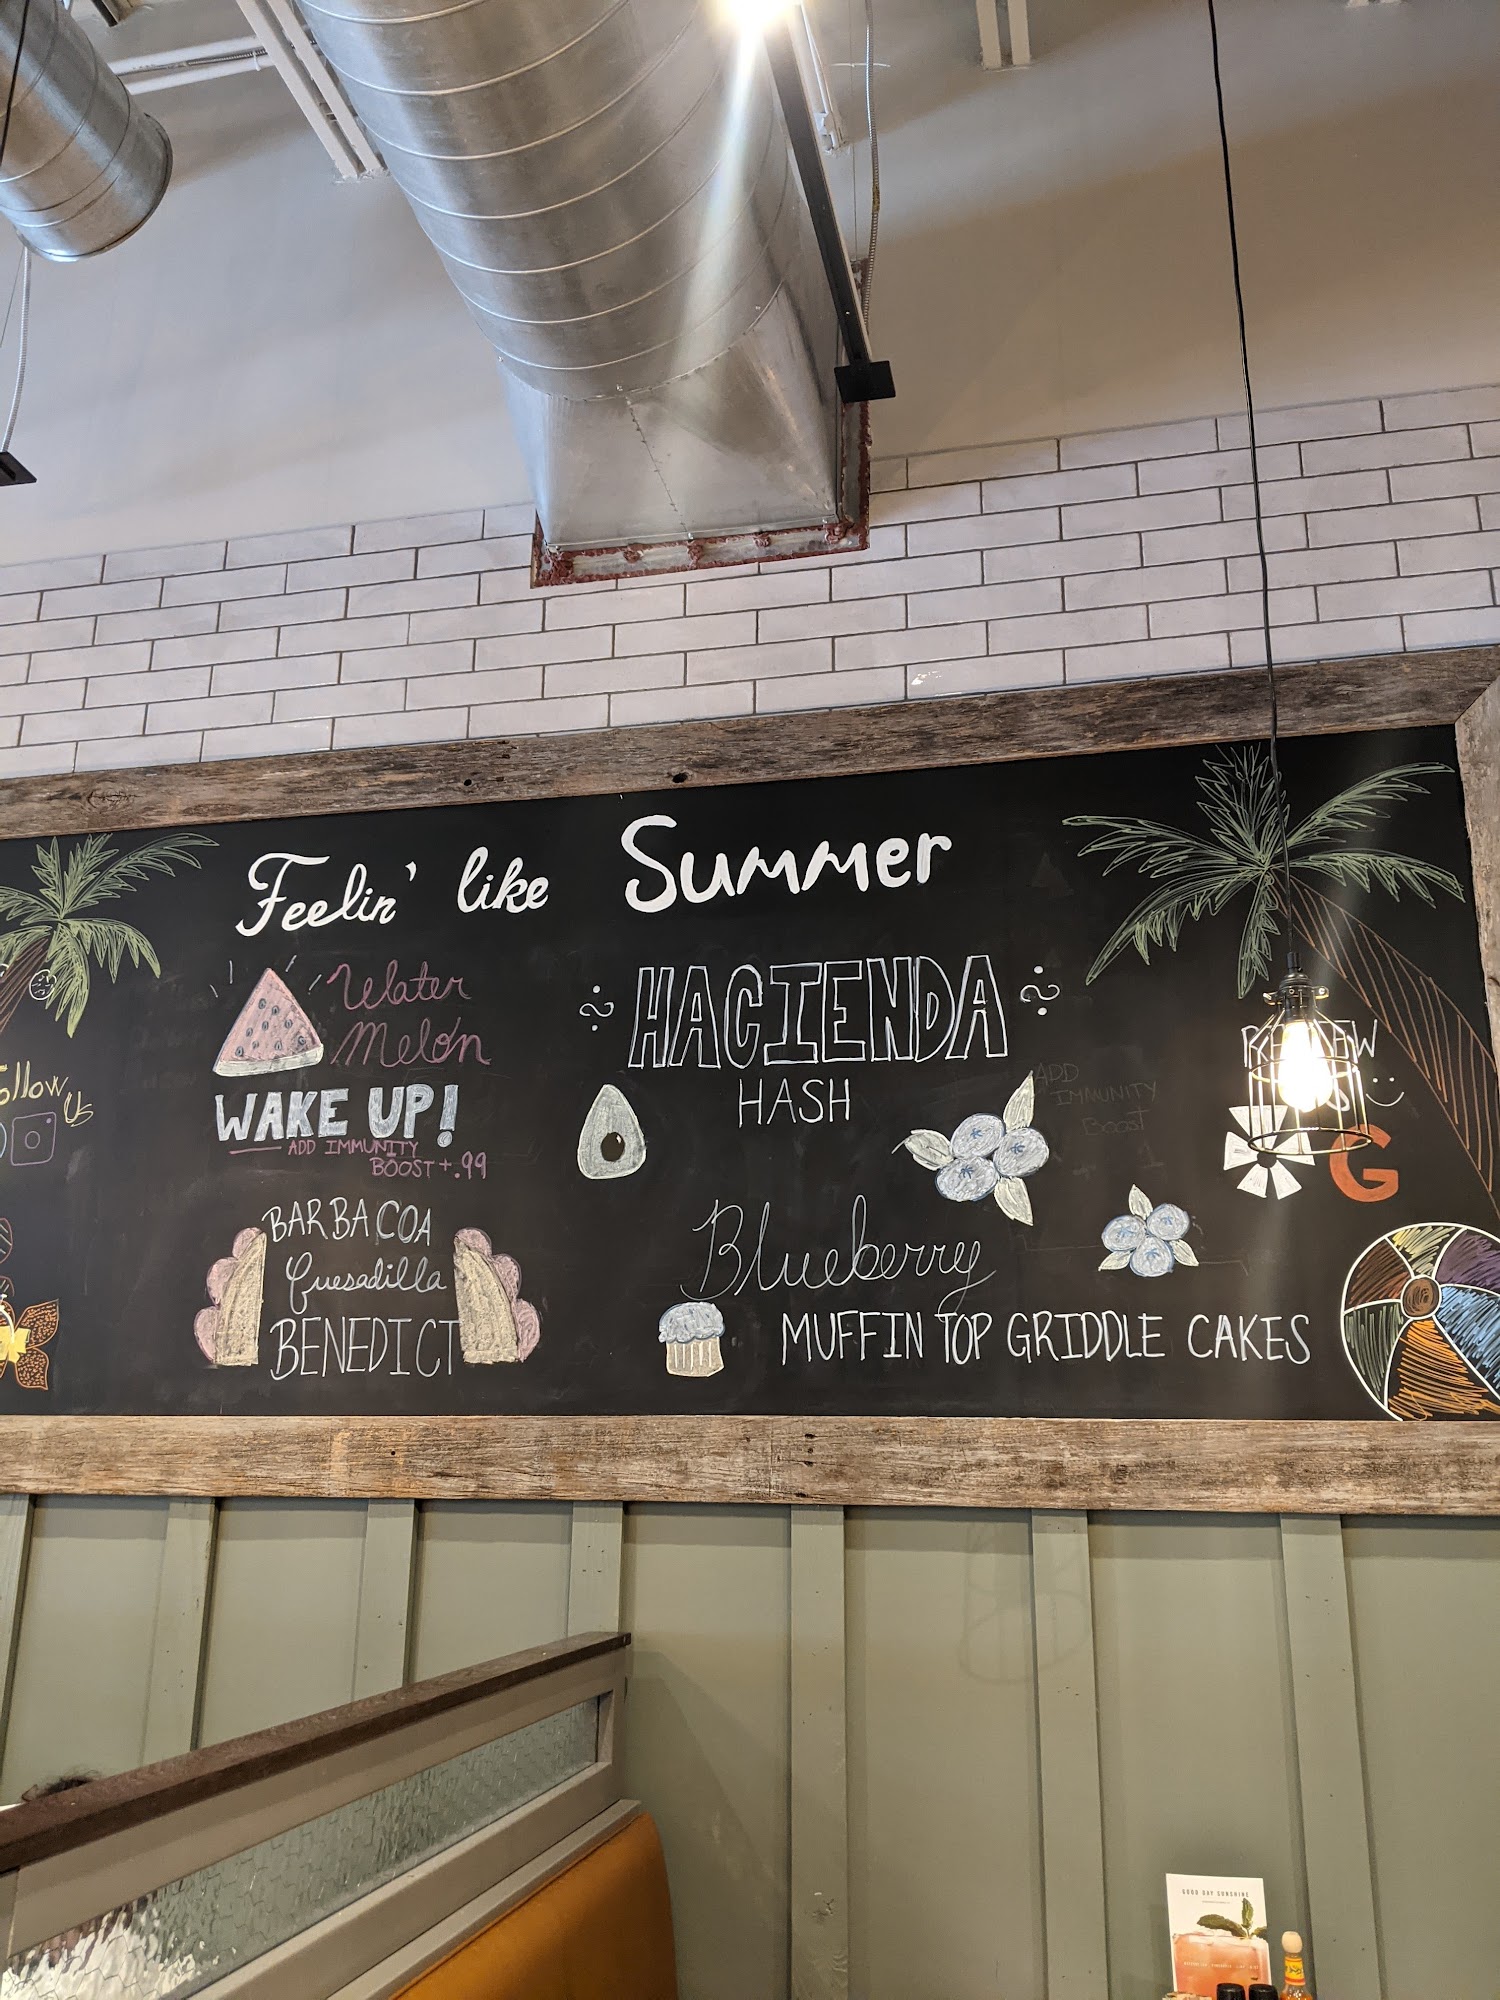 Feelin' like Summer
Water
Melon
WAKE UP!
ADD IMMUNITY
BOOST + .99
BARBACOA
Quesadilla
BENEDICT
HACIENDA
HASH
ADD
IMMUNITY
Boost
Blueberry
MUFFIN TOP GRIDDLE CAKES
ollow
us
G
GOOD DAY SUNSHINE